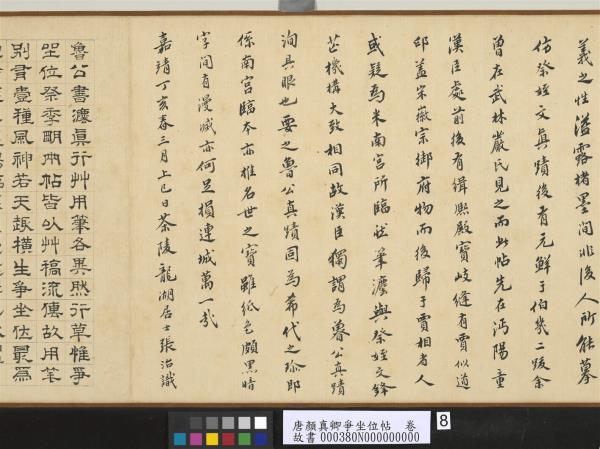 義之性溢露楮墨間非後人所能摹
仿祭姪文真蹟後有元鮮于伯幾二跋余
曾在武林嚴氏見之而此帖先在沔陽童
漢臣處前後有緝熙殿寶歧縫有賈似道
印蓋宋徽宗御府物而後歸于賈相者人
或疑為米南宮所臨然筆瀍與祭姪文鋒
芒機構大致相同故漢臣獨謂為魯公真蹟
洵具眼也要之魯公真蹟固為希代之珍即
係南宮臨本亦推名世之寶雖紙色頗黑暗
字間有漫滅亦何足損連城萬一哉
嘉靖丁亥春三月上巳日茶陵龍湖居士張治識
魯公書瀍真行艸用筆各異然行草惟爭
坐位祭季明兩帖皆以艸稿流傳故用筆
別有壹種風神若天趣橫生爭坐位最為
唐顏真卿爭坐位帖 卷
故書000380N000000000
8